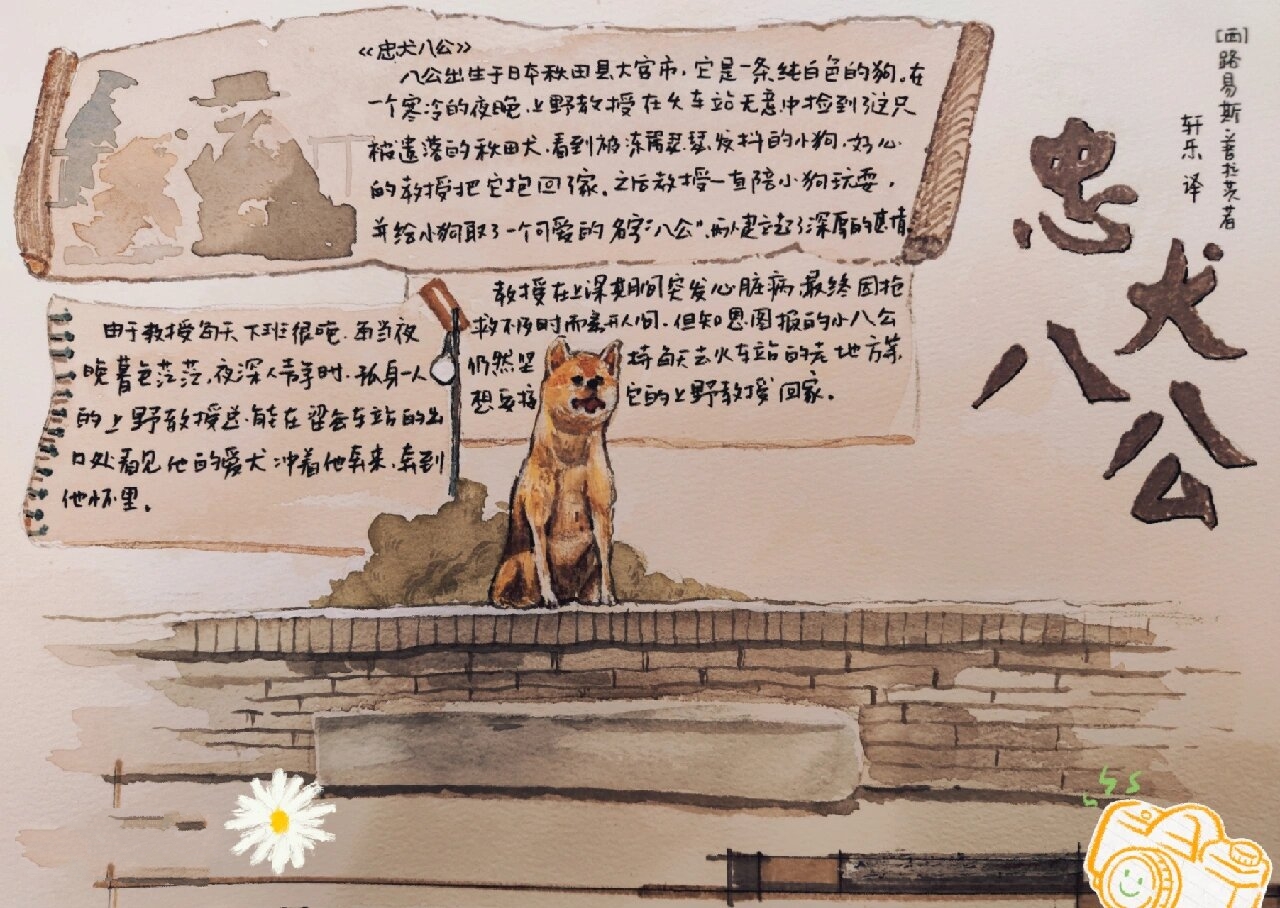 《忠犬八公》
八公出生于日本秋田县大宫市，它是一条纯白色的狗。在
一个寒冷的夜晚，上野教授在火车站无意中捡到了这只
被遗落的秋田犬，看到被冻得瑟瑟发抖的小狗，好心
的教授把它抱回了家。之后教授一直陪小狗玩耍，
并给小狗取了一个可爱的名字"八公"，两人建立起了深厚的感情。
教授在上课期间突发心脏病，最终因抢
救不及时而离开人间，但知恩图报的小八公
仍然坚 持每天去火车站的老地方等
想要接 它的上野教授回家。
由于教授每天下班很晚，而当夜
晚暮色茫茫，夜深人静时，孤身一人
的上野教授总能在留去车站的出
口处看见他的爱犬冲着他奔来，奔到
他怀里。
[西]路易斯·普拉茨 著
轩乐 译
忠犬八公